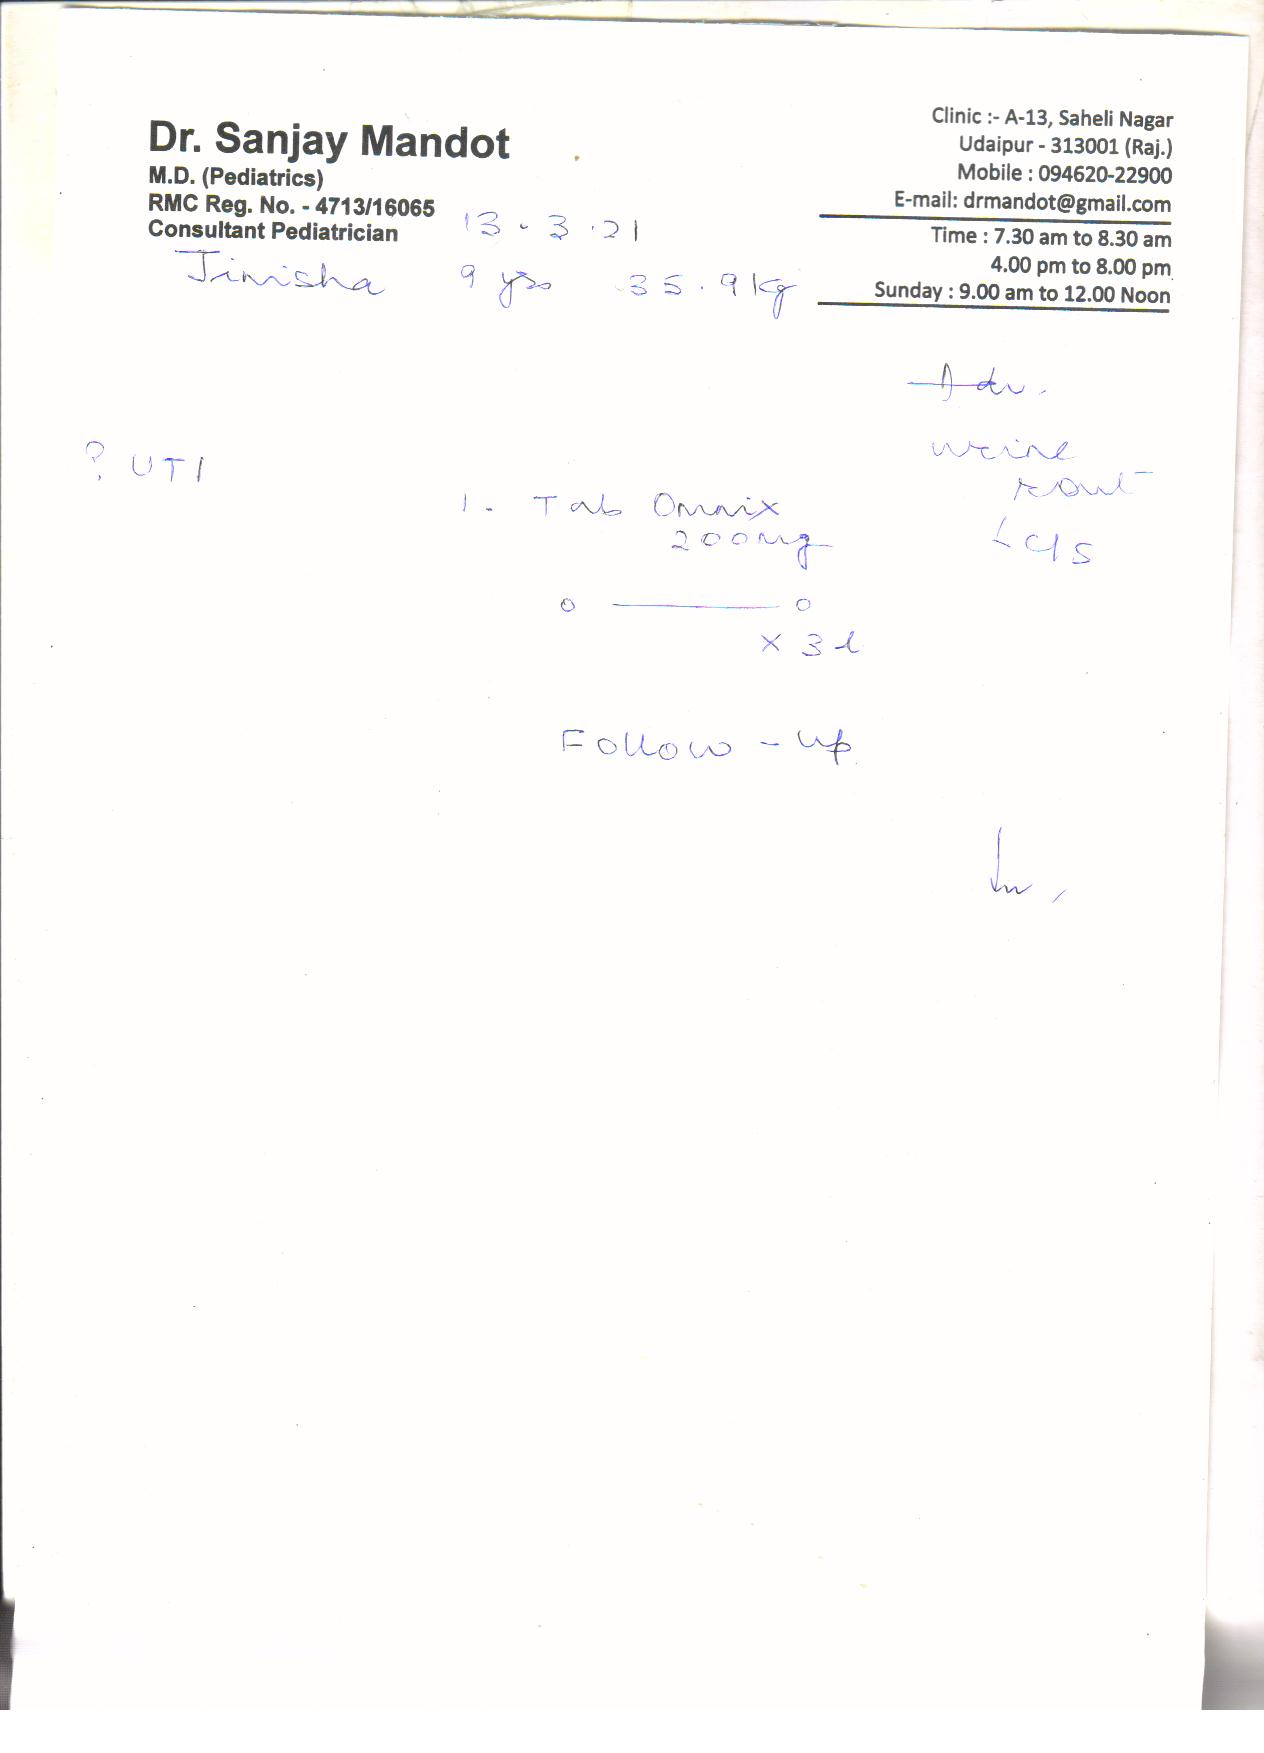 Dr. Sanjay Mandot
M.D. (Pediatrics)
RMC Reg. No. - 4713/16065
Consultant Pediatrician
Clinic :- A-13, Saheli Nagar
Udaipur - 313001 (Raj.)
Mobile : 094620-22900
E-mail: drmandot@gmail.com
Time : 7.30 am to 8.30 am
4.00 pm to 8.00 pm
Sunday : 9.00 am to 12.00 Noon
13.3.21
Jinisha 9 yrs 35.9 kg
Adv.
urine
rout
c/s
? UTI
1. Tab Omnix
200mg
o — o
x 3 d
Follow-up